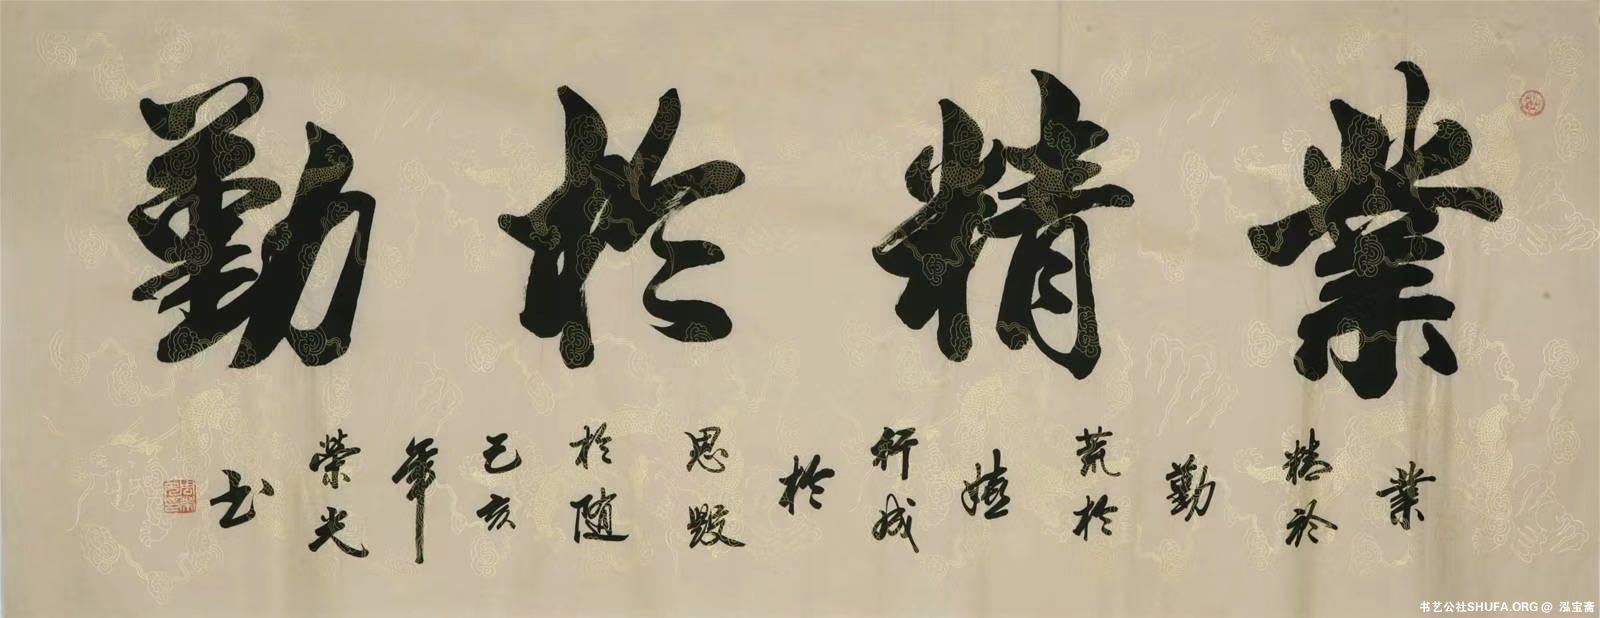 業精於勤
業精於勤荒於嬉行成於思毁於随己亥年榮光书
书艺公社SHUFA.ORG @ 泓宝斋